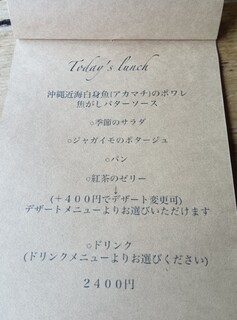 Today's lunch
沖縄近海白身魚(アカマチ)のポワレ
焦がしバターソース
○季節のサラダ
○ジャガイモのポタージュ
○パン
○紅茶のゼリー
↓
(+400円でデザート変更可)
デザートメニューよりお選びいただけます
○ドリンク
(ドリンクメニューよりお選びください)
2400円